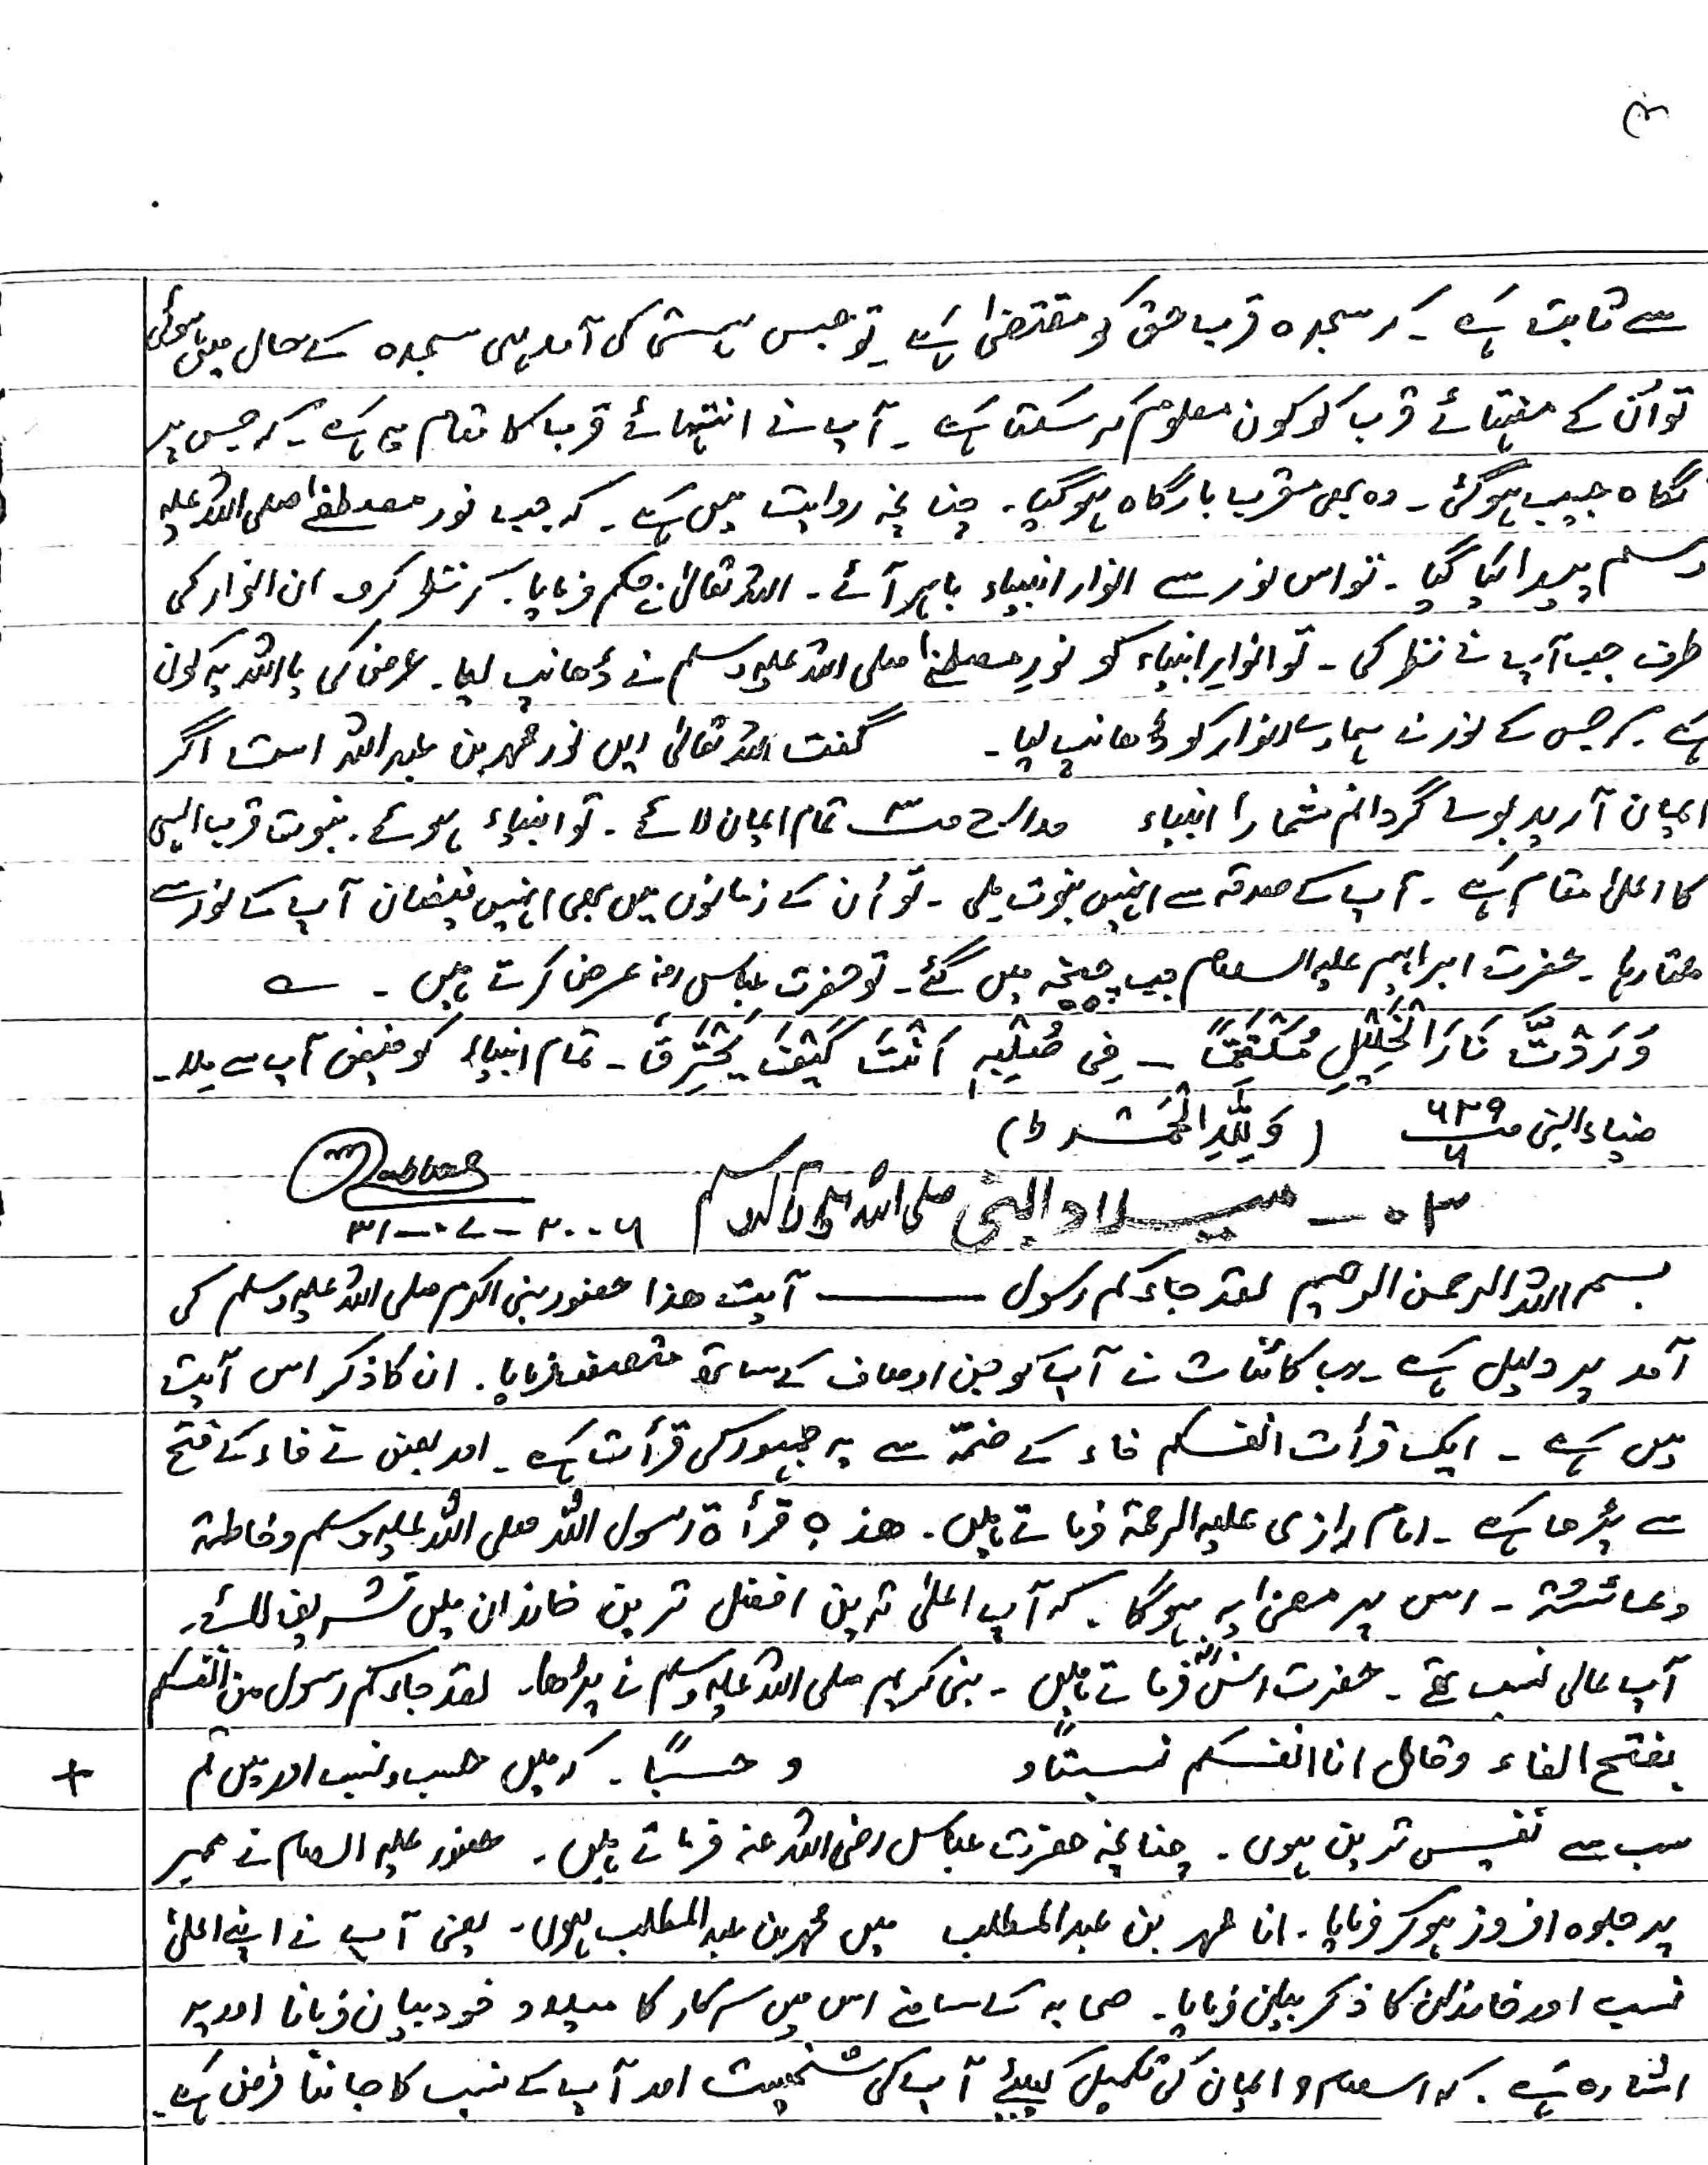 سے ثابت ہے ۔ کہ سجدہ قرب حق کو مقتضیٰ ہے تو جس ہستی کی آمد ہی سجدہ کے حال میں ہوئی
تو اُن کے منتہائے قرب کو کون معلوم کر سکتا ہے ۔ آپ نے انتہائے قرب کا مقام ہے ۔ کہ جس پر
نگاہ حبیب ہوگئی ۔ وہ بھی مقرب بارگاہ ہوگیا ۔ چنانچہ روایت میں ہے ۔ کہ جب نور مصطفےٰ صلی اللہ علیہ
وسلم پیدا کیا گیا ۔ تو اس نور سے انوار انبیاء باہر آئے ۔ اللہ تعالیٰ نے حکم فرمایا ۔ کہ نظر کرو ان انوار کی
طرف جب آپ نے نظر کی ۔ تو انوارِ انبیاء کو نورِ مصطفےٰ صلی اللہ علیہ وسلم نے ڈھانپ لیا ۔ عرض کی یا اللہ یہ کون
ہے ۔ کہ جس کے نور نے ہمارے انوار کو ڈھانپ لیا ۔ گفت اللہ تعالیٰ ایں نور محمد بن عبد اللہ است اگر
ایمان آرید بوے گردانم شما را انبیاء مدارج ص تمام ایمان لائے ۔ تو انبیاء ہوئے ۔ نبوت قرب الہی
کا اعلیٰ مقام ہے ۔ آپ کے صدقہ سے انہیں نبوت ملی ۔ تو اُن کے زمانوں میں بھی انہیں فیضان آپ کے نور سے
ملتا رہا ۔ حضرت ابراہیم علیہ السلام جب چیخہ میں گئے ۔ تو حضرت عباس رضہ عرض کرتے ہیں ۔
وَرَدْتَّ نَارَ الْخَلِیْلِ مُکْتَتِمًا ۔ فِی صُلْبِہٖ اَنْتَ کَیْفَ یَحْتَرِقُ ۔ تمام انبیاء کو فیض آپ سے ملا ۔
ضیاء النبی ص ۶۳۹ (وَلِلّٰہِ الْحَمْد)
۰۳ ۔ میلاد النبی صلی اللہ علیہ وآلہ وسلم ۳۱-۰۷-۲۰۰۶
بسم اللہ الرحمن الرحیم لقد جاءکم رسول ـــــ آیت ھذا حضور نبی اکرم صلی اللہ علیہ وسلم کی
آمد پر دلیل ہے ۔ رب کائنات نے آپ کو جن اوصاف کے ساتھ متصف فرمایا ۔ ان کا ذکر اس آیت
میں ہے ۔ ایک قرأت انفسکم فاء کے ضمّہ سے یہ جمہور کی قرأت ہے ۔ اور بعض نے فاء کے فتح
سے پڑھا ہے ۔ امام رازی علیہ الرحمۃ فرماتے ہیں ۔ ھذہ قرأۃ رسول اللہ صلی اللہ علیہ وسلم وفاطمۃ
وعائشۃ ۔ اس پر معنیٰ یہ ہوگا ۔ کہ آپ اعلیٰ ترین افضل ترین خاندان میں تشریف لائے ۔
آپ عالی نسب تھے ۔ حضرت انسؓ فرماتے ہیں ۔ نبی کریم صلی اللہ علیہ وسلم نے پڑھا ۔ لقد جاءکم رسول من انفسکم
بفتح الفاء وقال انا انفسکم نسبًا و و حسبًا ۔ کہ میں حسب و نسب اور میں تم +
سب سے نفیس ترین ہوں ۔ چنانچہ حضرت عباس رضی اللہ عنہ فرماتے ہیں ۔ حضور علیہ السلام نے ممبر
پر جلوہ افروز ہو کر فرمایا ۔ انا محمد بن عبد المطلب میں محمد بن عبد المطلب ہوں ۔ یعنی آپ نے اپنے اعلیٰ
نسب اور خاندان کا ذکر بیان فرمایا ۔ صحابہ کے سامنے اس میں سرکار کا میلاد خود بیان فرمانا اور یہ
اشارہ ہے ۔ کہ اسلام و ایمان کی تکمیل کیلئے آپ کی شخصیت اور آپ کے نسب کا جاننا فرض ہے ۔